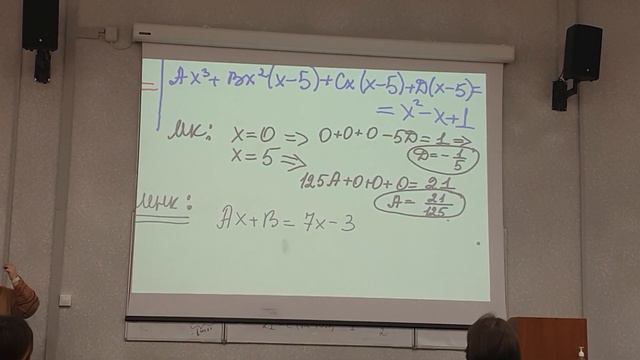 Ax³ + Bx²(x-5) + Cx(x-5) + D(x-5) =
= x² - x + 1
МК: x = 0 => 0+0+0-5D = 1 =>
D = -1/5
x = 5 =>
125A+0+0+0 = 21
A = 21/125
МНК:
Ax + B = 7x - 3